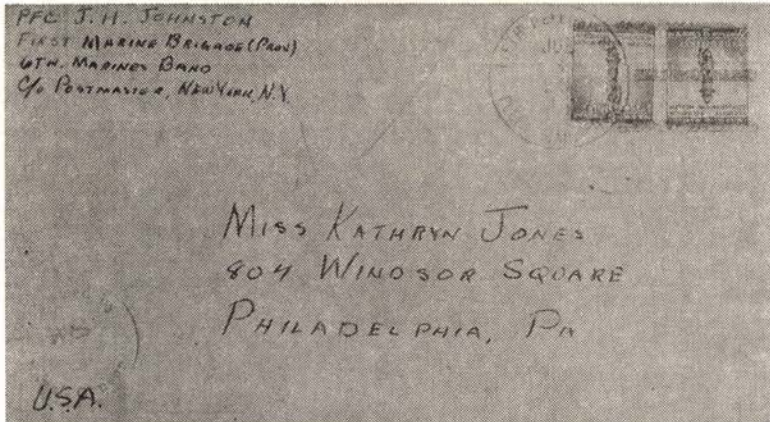 PFC J. H. JOHNSTON
FIRST MARINE BRIGADE (PROV)
6TH. MARINES BAND
C/o POSTMASTER, NEW YORK, N.Y.
MISS KATHRYN JONES
804 WINDSOR SQUARE
PHILADELPHIA, PA
U.S.A.